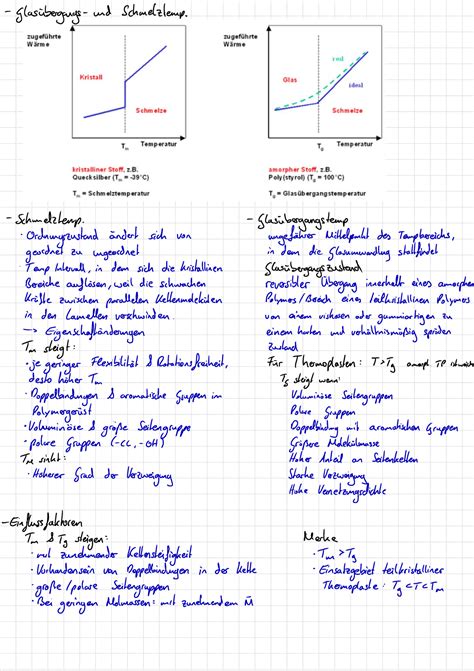 - Glasübergangs- und Schmelztemp.
zugeführte
Wärme
Kristall
Schmelze
T_m
Temperatur
kristalliner Stoff, z.B.
Quecksilber (T_m = -39°C)
T_m = Schmelztemperatur
zugeführte
Wärme
real
Glas
ideal
Schmelze
T_g
Temperatur
amorpher Stoff, z.B.
Poly(styrol) (T_g = 100°C)
T_g = Glasübergangstemperatur
- Schmelztemp.
· Ordnungszustand ändert sich von
geordnet zu ungeordnet
Temp Intervall, in dem sich die kristallinen
Bereiche auflösen, weil die schwachen
Kräfte zwischen parallelen Kettenmolekülen
in den Lamellen verschwinden.
-> Eigenschaftänderungen
T_m steigt:
· je geringer Flexibilität & Rotationsfreiheit,
desto höher T_m
· Doppelbindungen & aromatische Gruppen im
Polymergerüst
· Voluminöse & große Seitengruppe
· polare Gruppen (-CL, -OH)
T_m sinkt:
· Höherer Grad der Verzweigung
- Glasübergangstemp
ungefährer Mittelpunkt des Tempbereichs,
in dem die Glasumwandlung stattfindet
Glasübergangszustand
reversibler Übergang innerhalb eines amorphen
Polymers/Bereich eines teilkristallinen Polymers
von einem viskosen oder gummiartigen zu
einem harten und verhältnismäßig spröden
Zustand
Für Thermoplasten: T>T_g amorph. TP
T_g steigt wenn:
Voluminöse Seitengruppen
Polare Gruppen
Doppelbindung mit aromatischen Gruppen
Größere Molekülmasse
Hoher Anteil an Seitenketten
Starke Verzweigung
Hohe Vernetzungsdichte
- Einflussfaktoren
T_m & T_g steigen:
· mit zunehmender Kettensteifigkeit
· Vorhandensein von Doppelbindungen in der Kette
· große/polare Seitengruppen
· Bei geringen Molmassen: mit zunehmendem M̄
Merke
· T_m > T_g
· Einsatzgebiet teilkristalliner
Thermoplaste: T_g < T < T_m